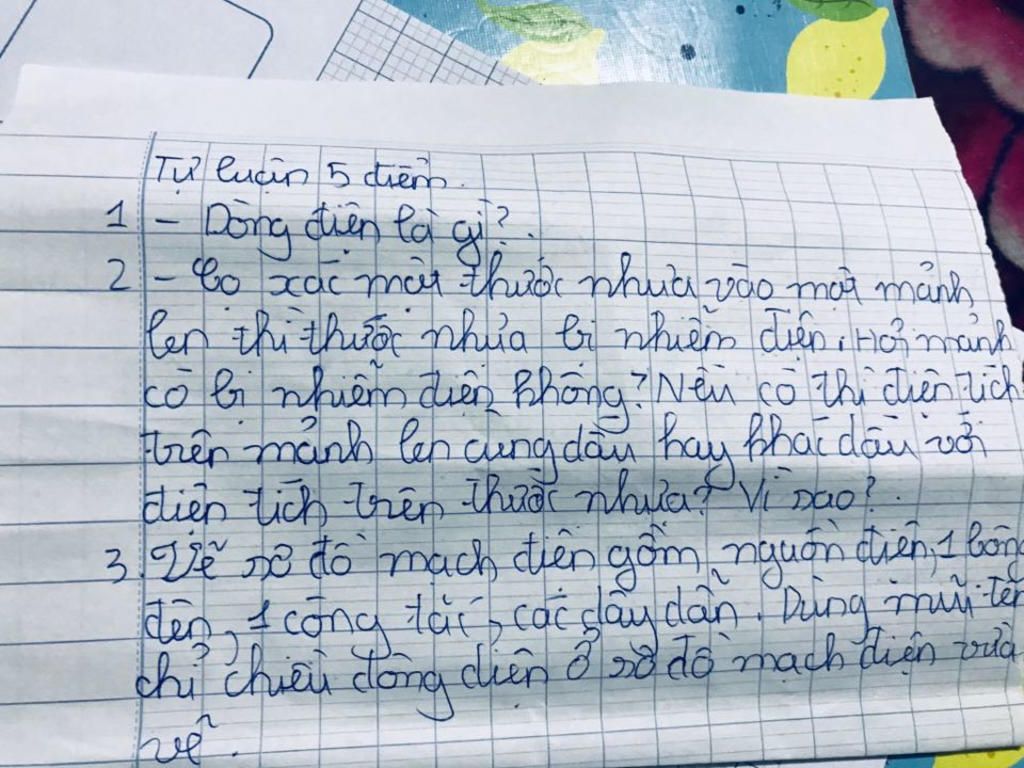 Tự luận 5 điểm.
1 - Dòng điện là gì?.
2 - Cọ xác một thước nhựa vào một mảnh
len thì thước nhựa bị nhiễm điện. Hỏi mảnh
có bị nhiễm điện không? Nếu có thì điện tích
trên mảnh len cùng dấu hay khác dấu với
điện tích trên thước nhựa? Vì sao?.
3. Vẽ sơ đồ mạch điện gồm, nguồn điện, 1 bóng
đèn, 1 công tắc, các dây dẫn. Dùng mũi tên
chỉ chiều dòng điện ở sơ đồ mạch điện vừa
vẽ.